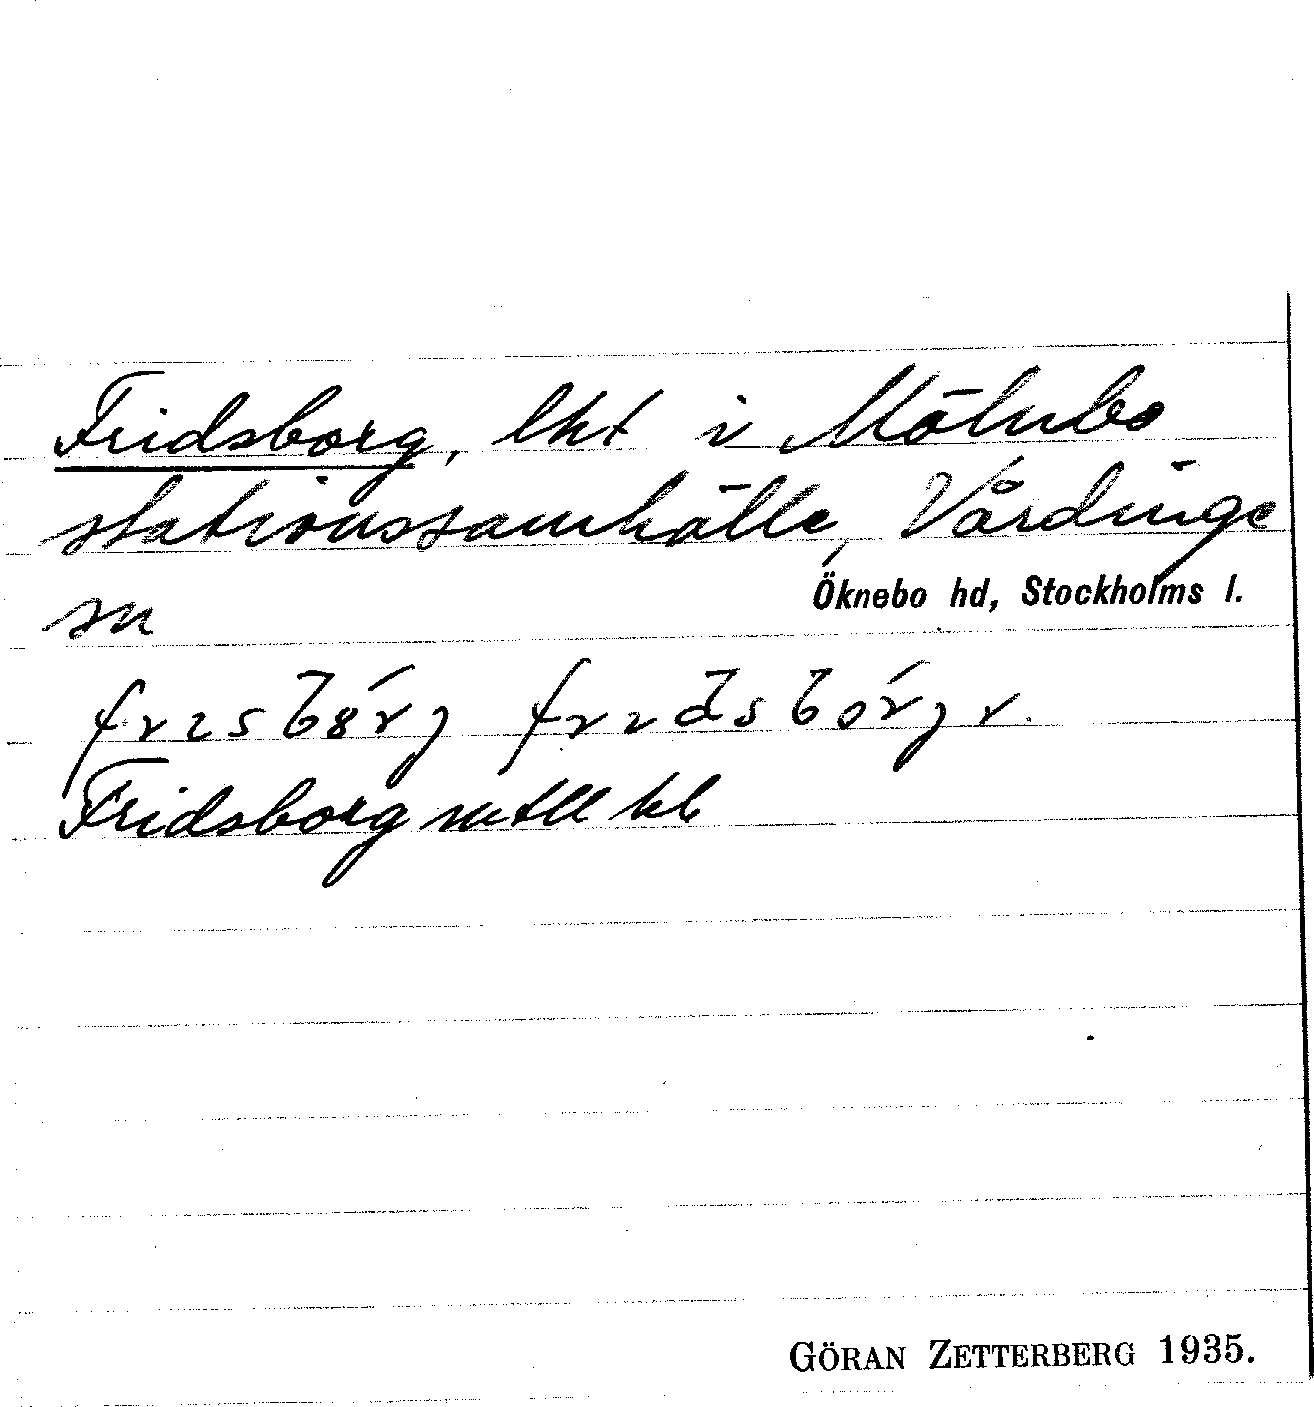 Fridsborg, lht i Mölnbo
stationssamhälle, Vårdinge
Öknebo hd, Stockholms l.
sn
Fridsborg mtll kb
GÖRAN ZETTERBERG 1935.